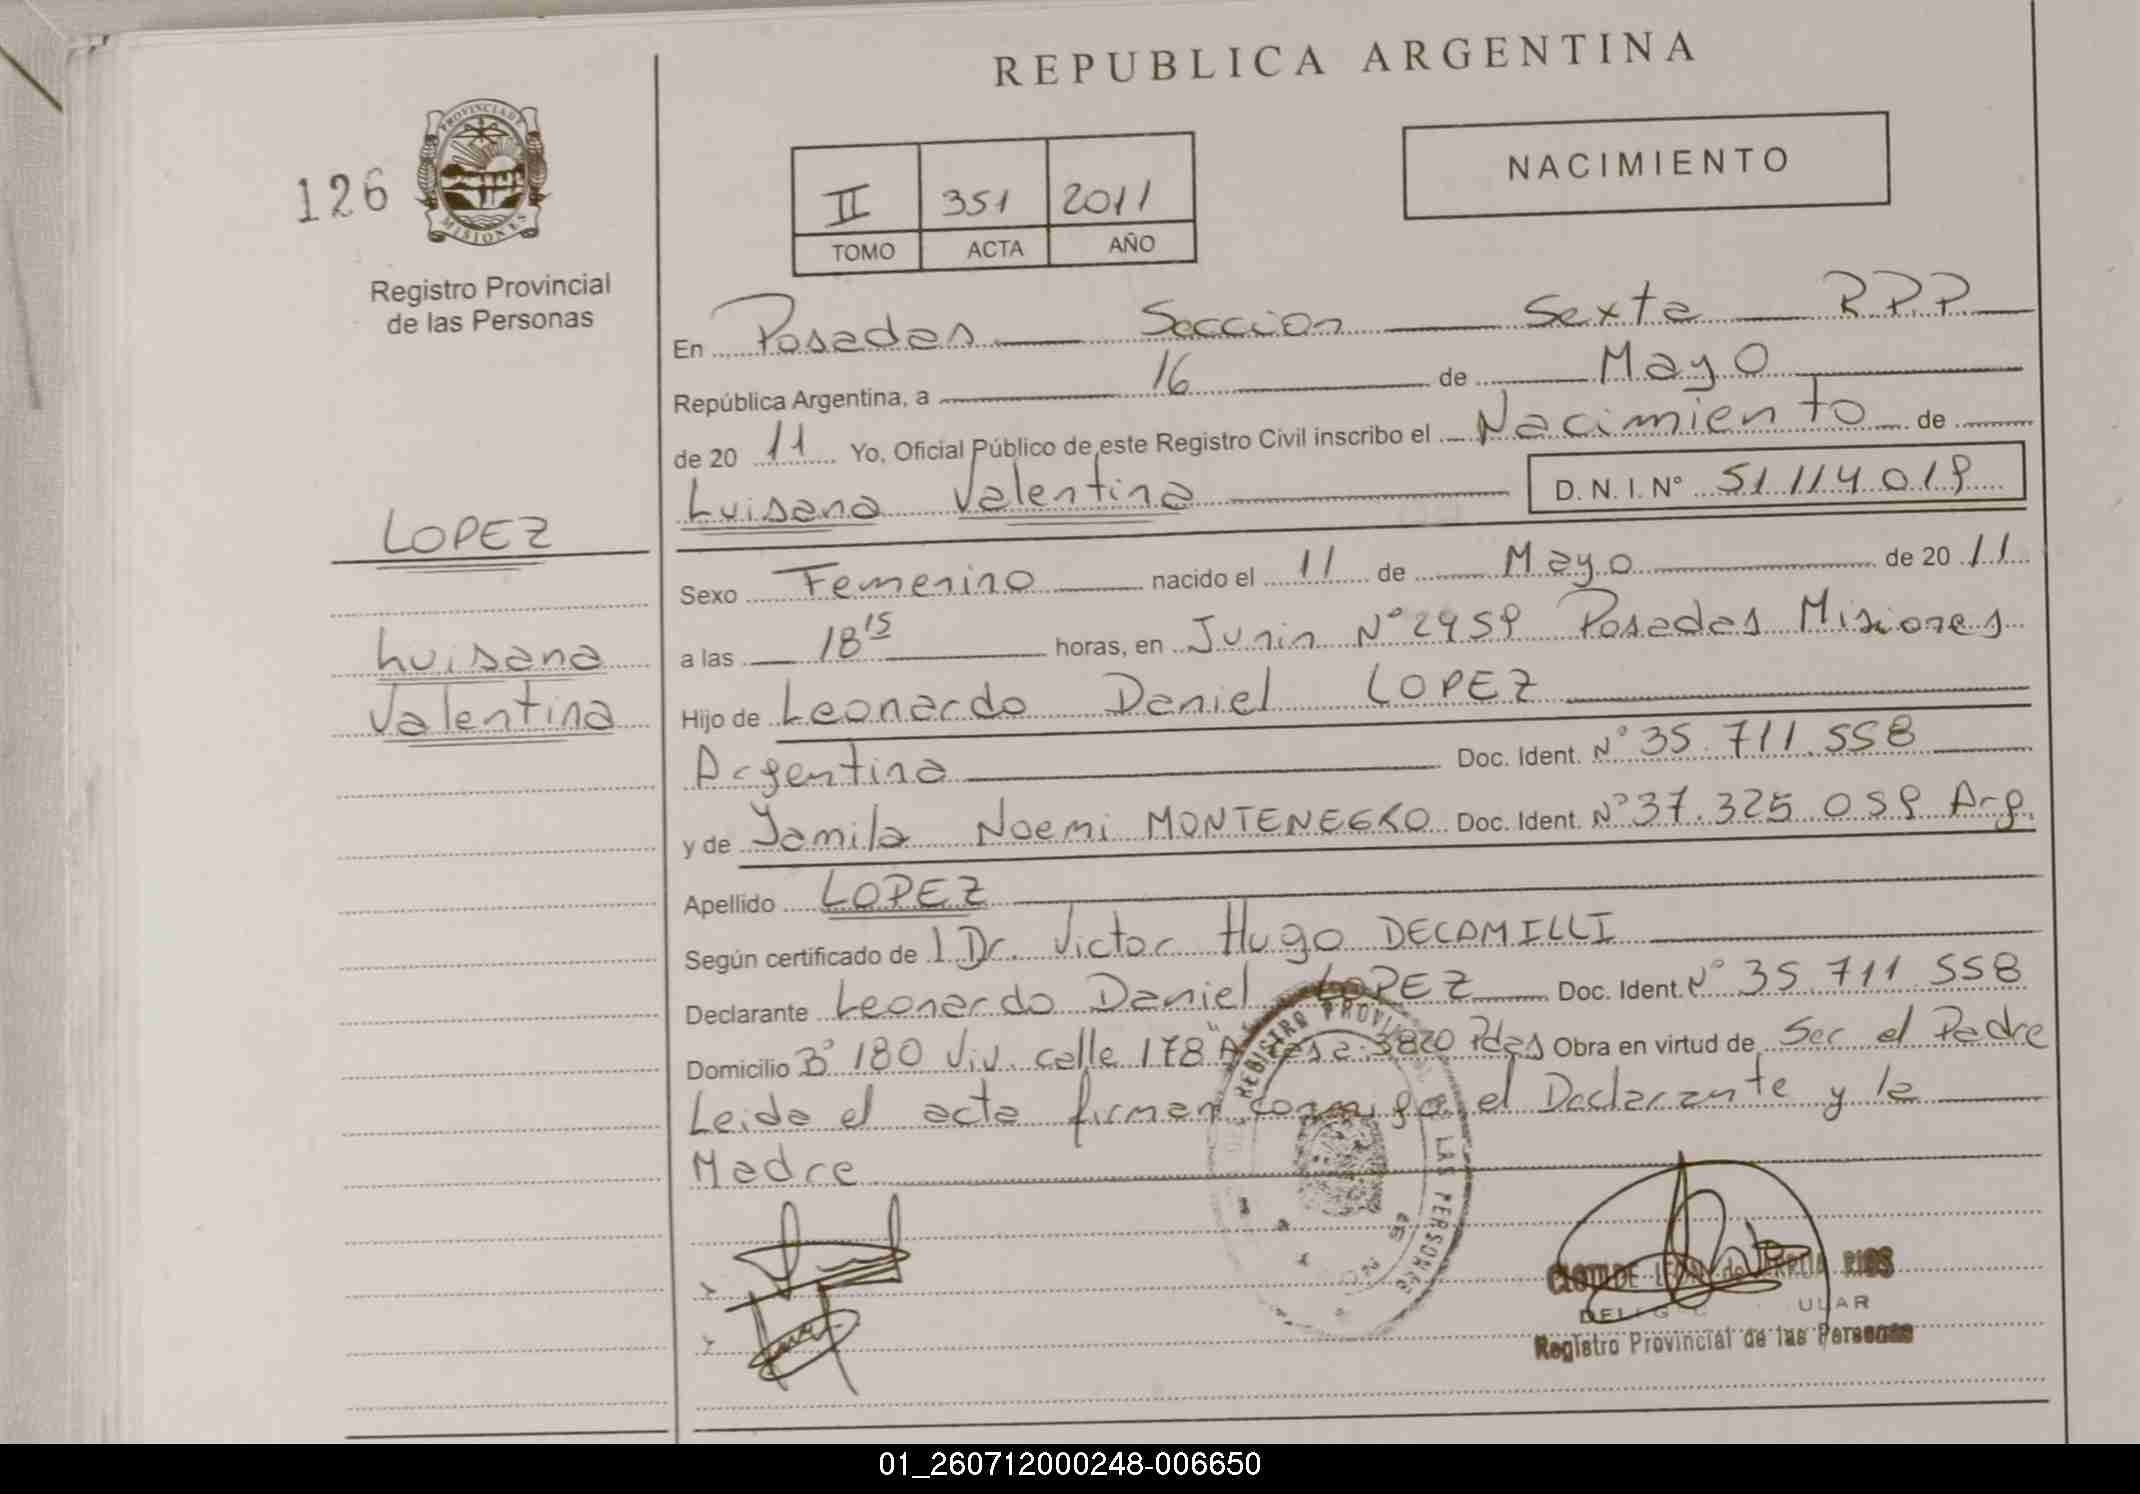 REPUBLICA ARGENTINA
126
PROVINCIA DE
MISIONES
Registro Provincial
de las Personas
II 351 2011
TOMO ACTA AÑO
NACIMIENTO
En Posadas Seccion Sexta R.P.P
República Argentina, a 16 de Mayo
de 20 11 Yo, Oficial Público de este Registro Civil inscribo el Nacimiento de
Luisana Valentina D. N. I. Nº 51.114.019
LOPEZ
Luisana
Valentina
Sexo Femenino nacido el 11 de Mayo de 20 11
a las 18 15 horas, en Junin Nº 2459 Posadas Misiones
Hijo de Leonardo Daniel LOPEZ
Argentina Doc. Ident. Nº 35.711.558
y de Yamila Noemi MONTENEGRO Doc. Ident. Nº 37.325.059 Arg.
Apellido LOPEZ
Según certificado de l Dr. Victor Hugo DECAMILLI
Declarante Leonardo Daniel LOPEZ Doc. Ident. Nº 35.711.558
Domicilio Bº 180 Viv. calle 178 "A" casa 3820 Pdas Obra en virtud de Ser el Padre
Leida el acta firman conmigo el Declarante y la
Madre
REGISTRO PROVINCIAL DE LAS PERSONAS
CLOTILDE RIOS
Registro Provincial de las Personas
01_260712000248-006650